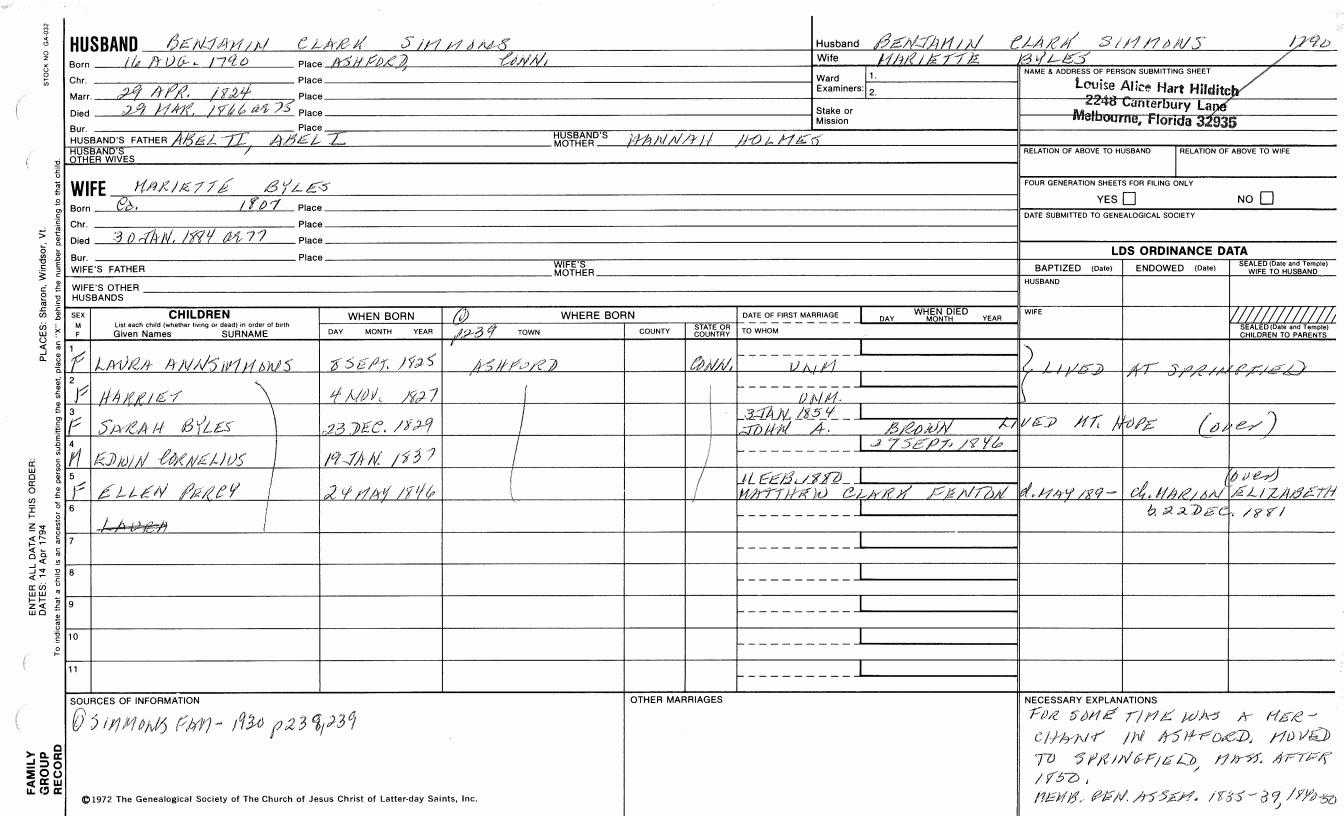 STOCK NO GA-032
HUSBAND BENJAMIN CLARK SIMMONS
Born 16 AUG. 1790 Place ASHFORD, CONN.
Chr. Place
Marr. 29 APR. 1824 Place
Died 29 MAR. 1866 ae 75 Place
Bur. Place
HUSBAND'S FATHER ABEL II, ABEL I HUSBAND'S MOTHER HANNAH HOLMES
HUSBAND'S OTHER WIVES
Husband BENJAMIN CLARK SIMMONS 1790
Wife MARIETTE BYLES
Ward Examiners: 1.
2.
Stake or Mission
NAME & ADDRESS OF PERSON SUBMITTING SHEET
Louise Alice Hart Hilditch
2248 Canterbury Lane
Melbourne, Florida 32935
RELATION OF ABOVE TO HUSBAND RELATION OF ABOVE TO WIFE
FOUR GENERATION SHEETS FOR FILING ONLY
YES NO
DATE SUBMITTED TO GENEALOGICAL SOCIETY
WIFE MARIETTE BYLES
Born Ca. 1807 Place
Chr. Place
Died 30 JAN. 1884 ae 77 Place
Bur. Place
WIFE'S FATHER WIFE'S MOTHER
WIFE'S OTHER HUSBANDS
LDS ORDINANCE DATA
BAPTIZED (Date) ENDOWED (Date) SEALED (Date and Temple) WIFE TO HUSBAND
HUSBAND
WIFE
SEALED (Date and Temple) CHILDREN TO PARENTS
SEX M F CHILDREN
List each child (whether living or dead) in order of birth
Given Names SURNAME
WHEN BORN
DAY MONTH YEAR
① p239 WHERE BORN
TOWN COUNTY STATE OR COUNTRY
DATE OF FIRST MARRIAGE
TO WHOM
WHEN DIED
DAY MONTH YEAR
1 F LAURA ANN SIMMONS 8 SEPT. 1825 ASHFORD CONN. UNM LIVED AT SPRINGFIELD
2 F HARRIET 4 NOV. 1827 UNM.
3 F SARAH BYLES 23 DEC. 1829 3 JAN. 1854 JOHN A. BROWN LIVED MT. HOPE (over)
4 M EDWIN CORNELIUS 19 JAN. 1837 27 SEPT. 1846
5 F ELLEN PERCY 24 MAY 1846 11 FEB. 1880 MATTHEW CLARK FENTON d. MAY 189- ch. MARION ELIZABETH (over)
b. 22 DEC. 1881
6 LAURA
7
8
9
10
11
SOURCES OF INFORMATION
① SIMMONS FAM - 1930 p238,239
OTHER MARRIAGES
NECESSARY EXPLANATIONS
FOR SOME TIME WAS A MER-
CHANT IN ASHFORD. MOVED
TO SPRINGFIELD, MASS. AFTER
1850.
MEMB. GEN. ASSEM. 1835-39, 1840-50
©1972 The Genealogical Society of The Church of Jesus Christ of Latter-day Saints, Inc.
FAMILY GROUP RECORD
ENTER ALL DATA IN THIS ORDER:
DATES: 14 Apr 1794
PLACES: Sharon, Windsor, Vt.
To indicate that a child is an ancestor of the person submitting the sheet, place an "X" behind the number pertaining to that child.